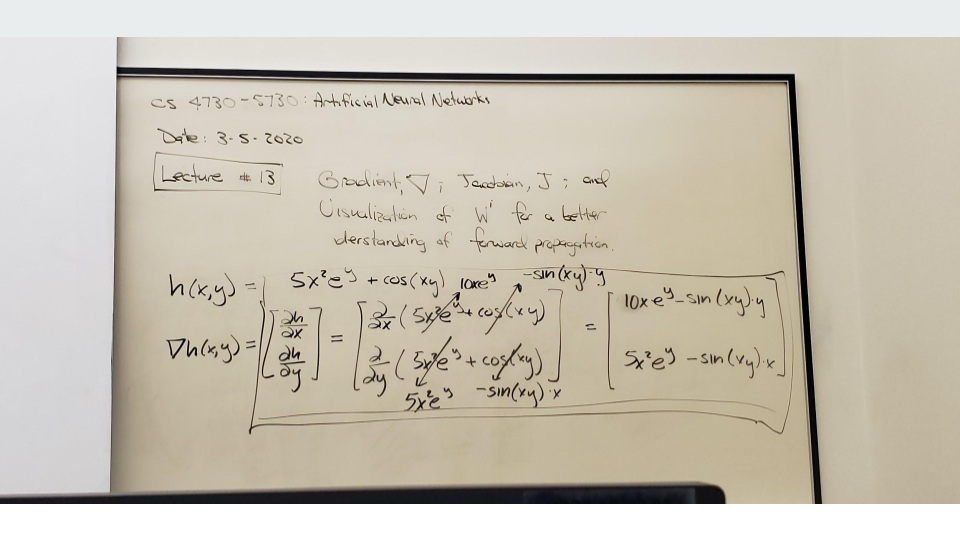 CS 4730-5730: Artificial Neural Networks
Date: 3-5-2020
Lecture #13
Gradient, ∇; Jacobian, J; and
Visualization of W' for a better
derstanding of forward propagation.
h(x,y) = 5x²e^y + cos(xy) 10xe^y -sin(xy)·y
∇h(x,y) = [∂h/∂x ∂h/∂y] = [∂/∂x (5x²e^y + cos(xy)) ∂/∂y (5x²e^y + cos(xy))] = [10xe^y - sin(xy)·y 5x²e^y - sin(xy)·x]
5x²e^y -sin(xy)·x